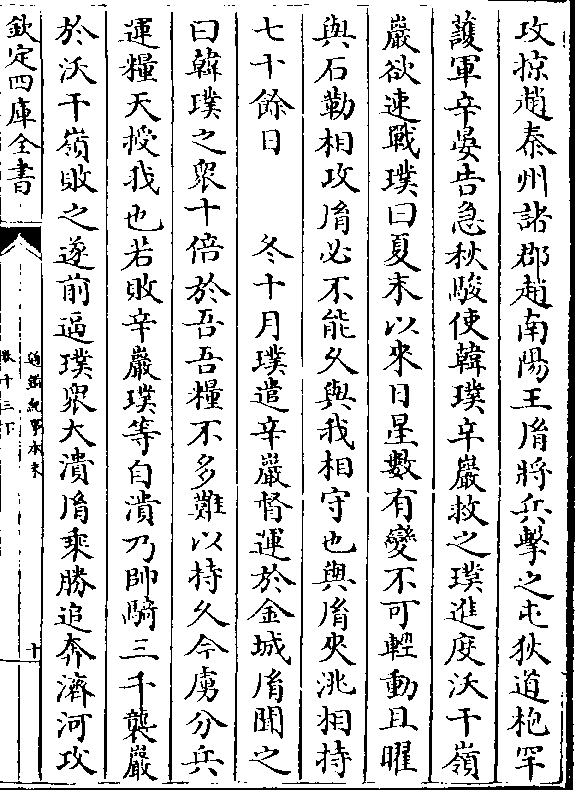 攻掠趙秦州諸郡趙南陽王𦙍將兵擊之屯狄道枹罕
䕶軍辛晏告急秋駿使韓璞辛巖救之璞進度沃干嶺
巖欲速戰璞曰夏末以來日星數有變不可輕動且曜
與石勒相攻𦙍必不能久與我相守也與𦙍夾洮相持
七十餘日　　冬十月璞遣辛巖督運於金城𦙍聞之
曰韓璞之衆十倍於吾吾糧不多難以持久今虜分兵
運糧天授我也若敗辛巖璞等自潰乃帥騎三千襲巖
於沃干嶺敗之遂前逼璞衆大潰𦙍乗勝追奔濟河攻
欽定四庫全書
通鑑紀事本末
卷十三下
十